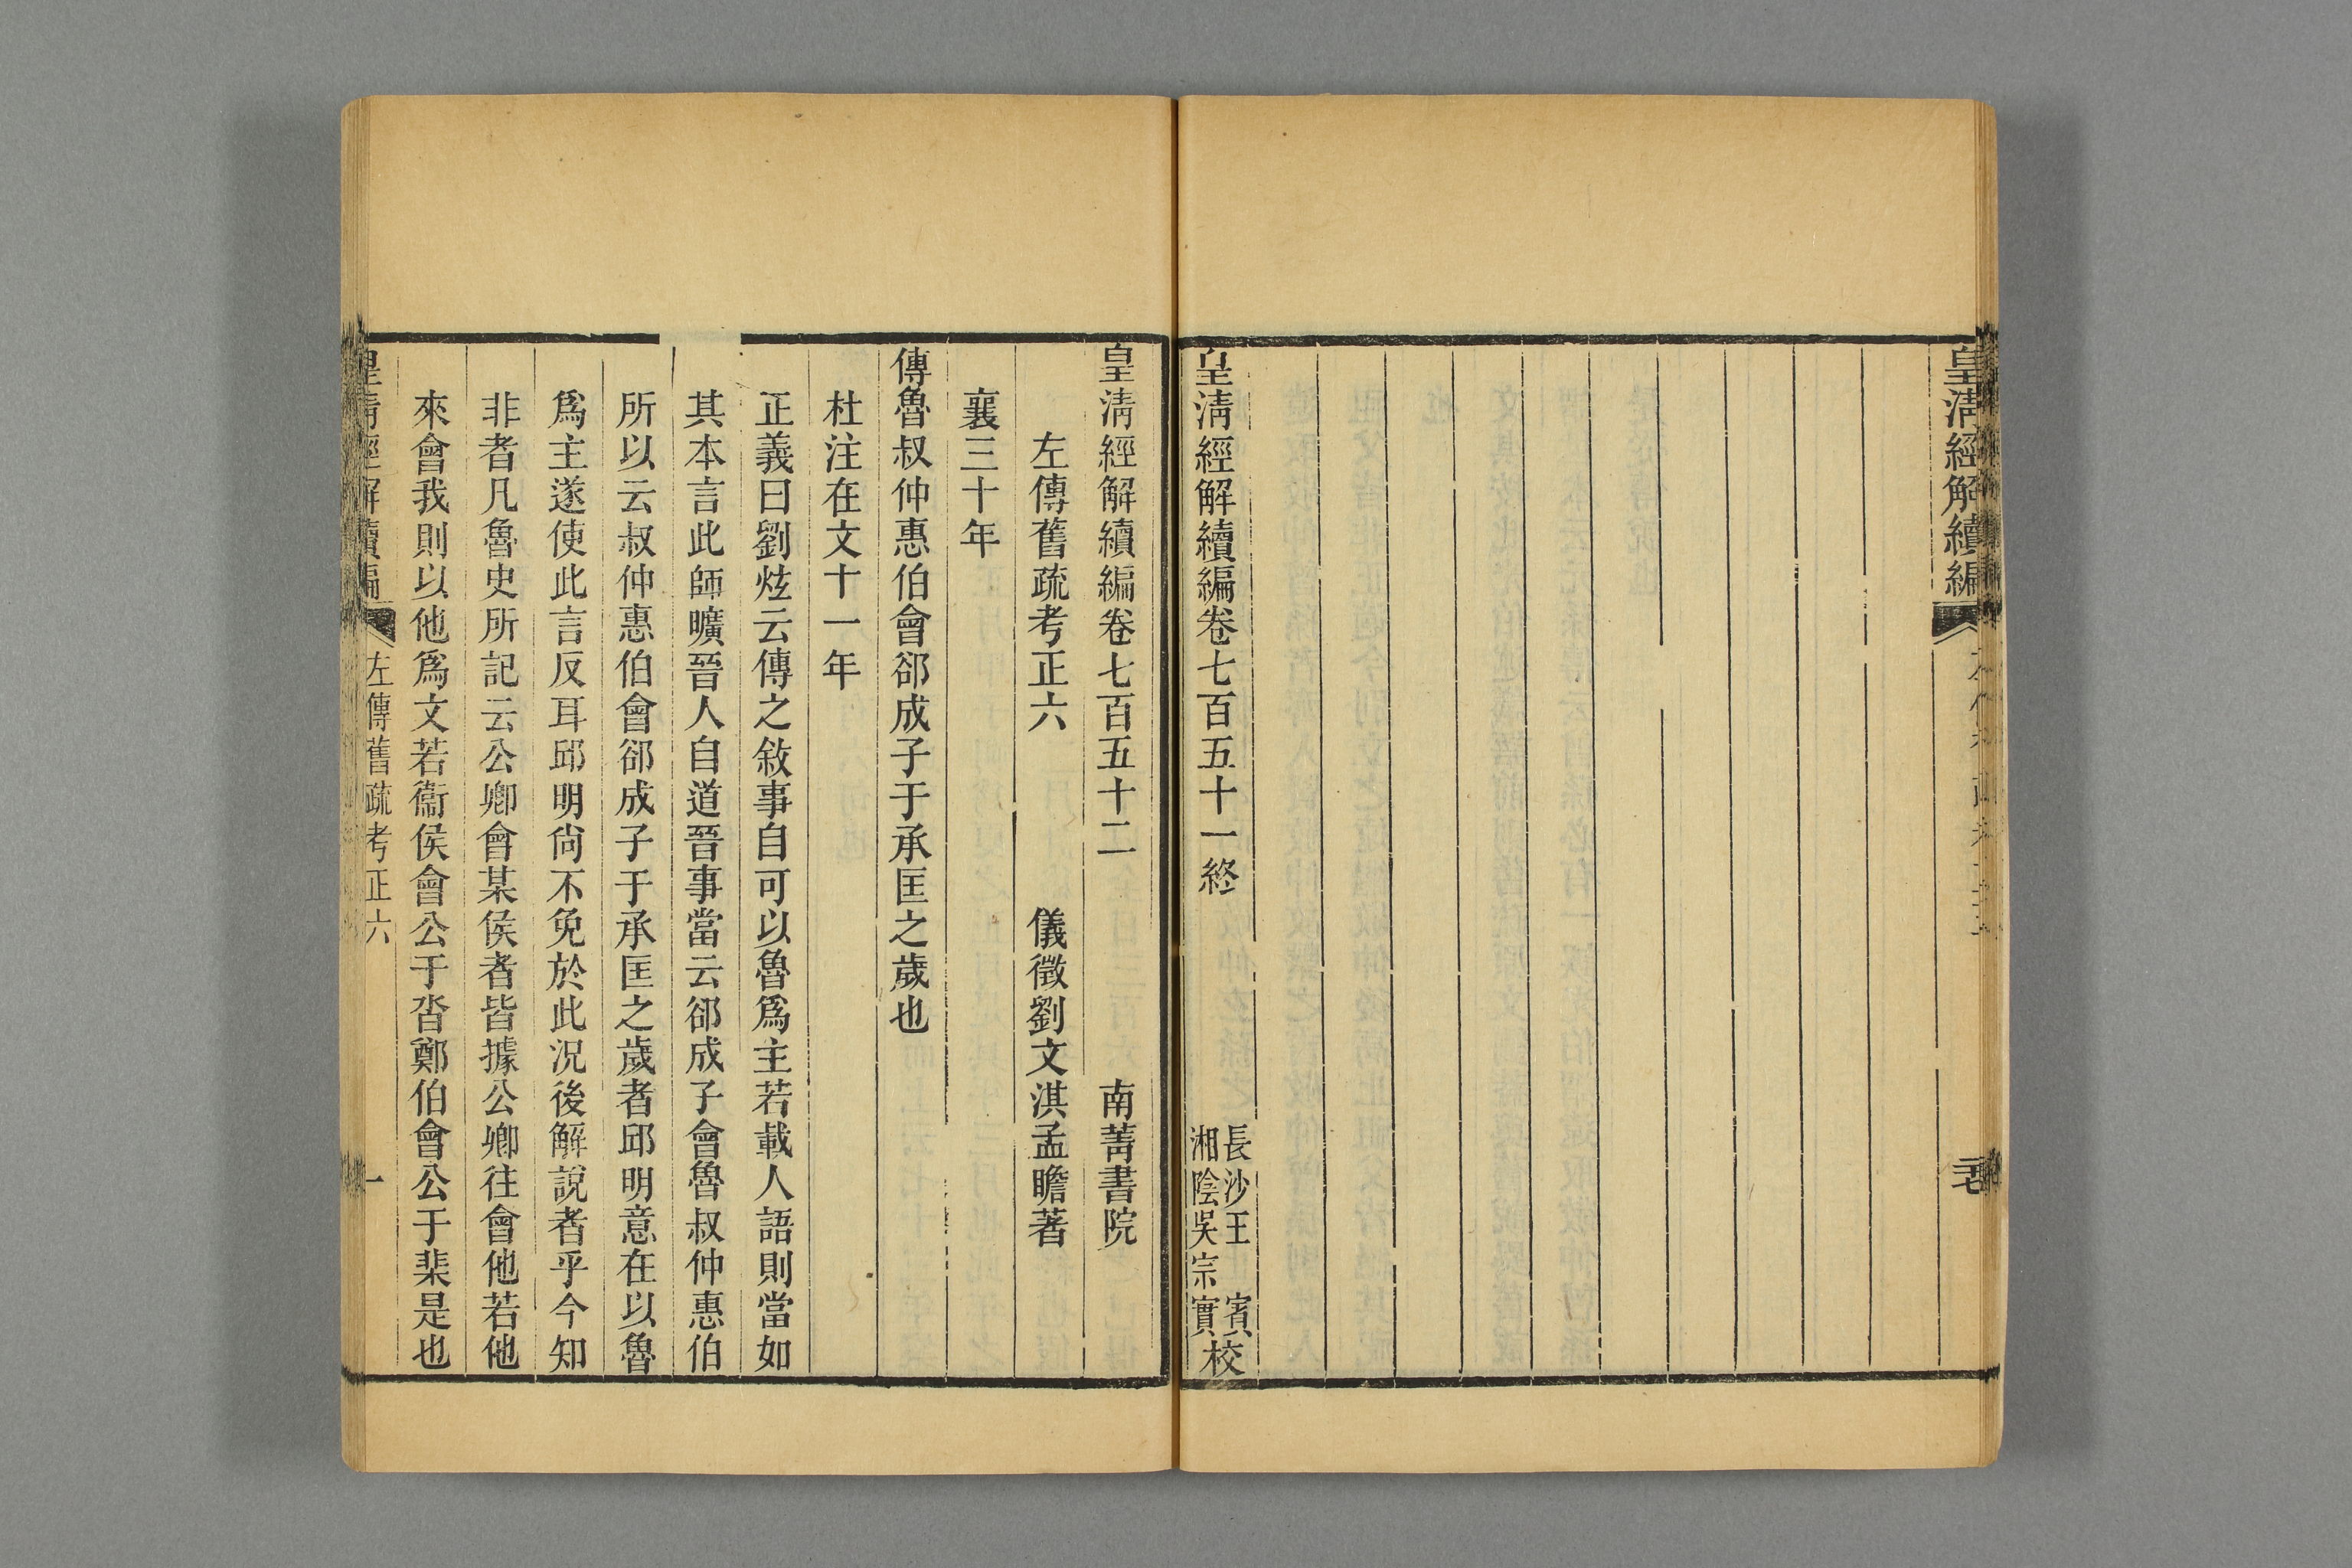 皇清經解續編
皇清經解續編卷七百五十一終
長沙王 賓
湘陰吳宗實
校
皇清經解續編卷七百五十二 南菁書院
左傳舊疏考正六 儀徵劉文淇孟瞻著
襄三十年
傳魯叔仲惠伯會郤成子于承匡之歲也
杜注在文十一年
正義曰劉炫云傳之敘事自可以魯爲主若載人語則當如
其本言此師曠晉人自道晉事當云郤成子會魯叔仲惠伯
所以云叔仲惠伯會郤成子于承匡之歲者邱明意在以魯
爲主遂使此言反耳邱明尙不免於此況後解說者乎今知
非者凡魯史所記云公卿會某侯者皆據公卿往會他若他
來會我則以他爲文若衞侯會公于沓鄭伯會公于棐是也
皇清經解續編 左傳舊疏考正六 一